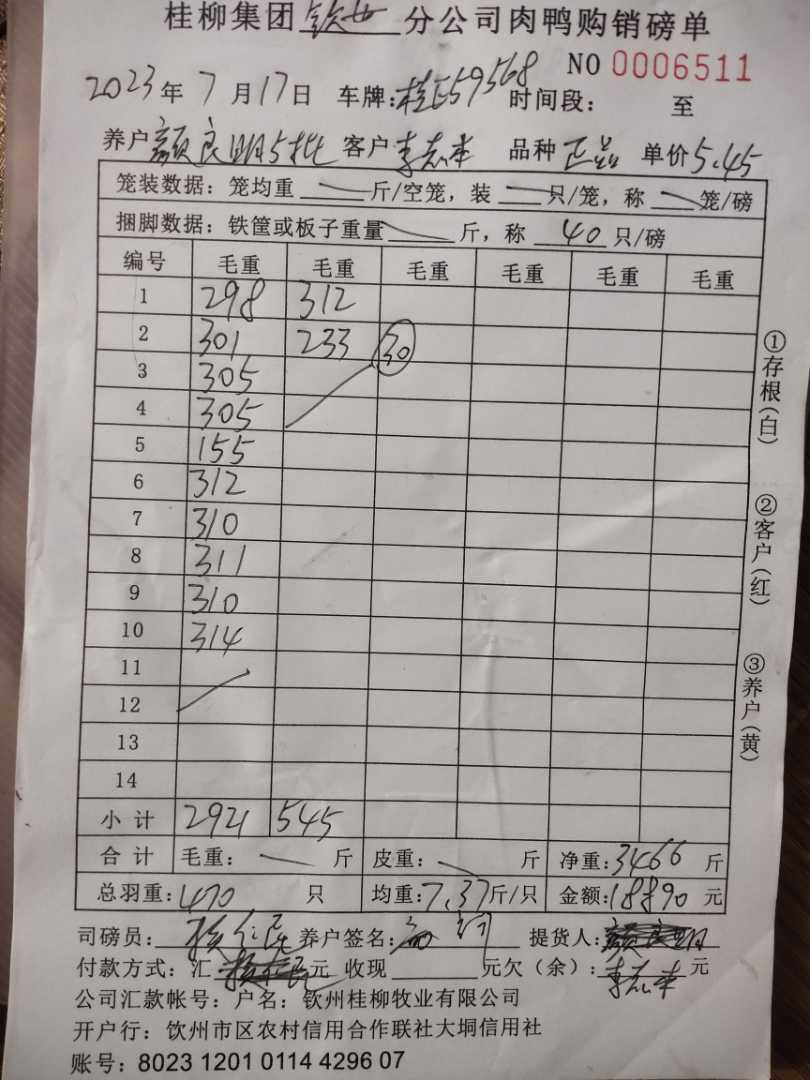 桂柳集团 分公司肉鸭购销磅单
NO 0006511
2023年7月17日 车牌:桂E59568 时间段: 至
养户颜良明5批 客户李志本 品种正品 单价5.45
笼装数据:笼均重 斤/空笼,装 只/笼,称 笼/磅
捆脚数据:铁筐或板子重量 斤,称 40 只/磅
编号 毛重 毛重 毛重 毛重 毛重 毛重
1 298 312
2 301 233 30
3 305
4 305
5 155
6 312
7 310
8 311
9 310
10 314
11
12
13
14
小计 2921 545
合计 毛重: 斤 皮重: 斤 净重:3466 斤
总羽重:470 只 均重:7.37斤/只 金额:18890元
司磅员: 养户签名: 提货人:
付款方式:汇 元 收现 元欠(余):李志本 元
公司汇款帐号:户名:钦州桂柳牧业有限公司
开户行:饮州市区农村信用合作联社大垌信用社
账号:8023 1201 0114 4296 07
①存根(白)
②客户(红)
③养户(黄)